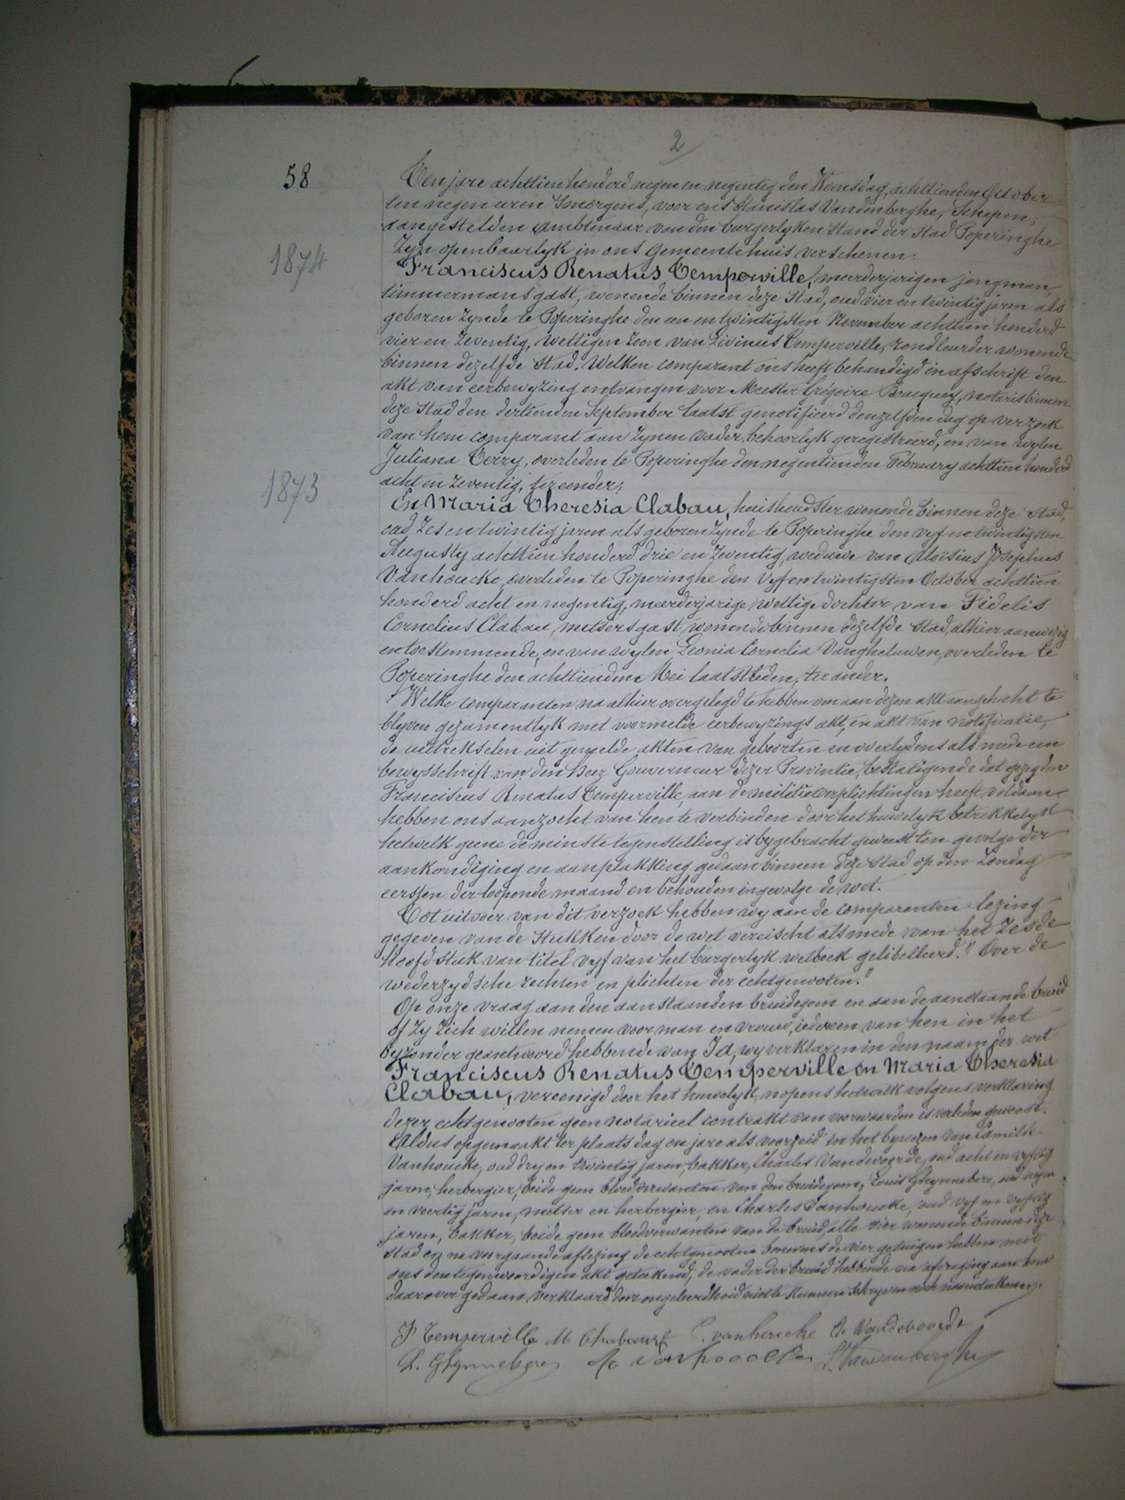 2
58
Ten jare achttien honderd negen en negentig den Woensdag, achttienden October
ten negen uren 's morgens, voor ons Stanislas Vandenberghe, Schepen,
aangestelden ambtenaar van den burgerlyken Stand der Stad Poperinghe
zyn openbaarlyk in ons Gemeentehuis verschenen:
1874
Franciscus Renatus Temperville, meerderjarigen jongman,
timmermansgast, wonende binnen deze Stad, oud vier en twintig jaren als
geboren zynde te Poperinghe den een en twintigsten November achttien honderd
vier en zeventig, wettigen zoon van Livinus Temperville, rondleurder wonende
binnen dezelfde Stad. Welken comparant ons heeft behandigd in afschrift den
akt van eerbewyzing ontvangen voor Meester Grégoire Braequey, notaris binnen
deze Stad den dertienden September laatst genotificeerd denzelfden dag op verzoek
van hem comparant aan zynen vader behoorlyk geregistreerd, en van wylen
Juliana Terry, overleden te Poperinghe den negentienden February achttien honderd
acht en zeventig, ter eender;
1873
En Maria Theresia Clabau, huishoudster wonende binnen deze Stad,
oud zes en twintig jaren als geboren zynde te Poperinghe den vyf en twintigsten
Augusty achttien honderd drie en zeventig, weduwe van Aloïsius Josephus
Vanhoucke, overleden te Poperinghe den vyf en twintigsten October achttien
honderd acht en negentig, meerderjarige wettige dochter van Fidelis
Cornelius Clabau, metsersgast, wonende binnen dezelfde stad, alhier aanwezig
en toestemmende, en van wylen Leonia Cornelia Vinghetuwen, overleden te
Poperinghe den achttienden Mei laatstleden, ter ander.
Welke comparanten na alhier overgelegd te hebben om aan dezen akt aangehecht te
blyven gezamentlyk met voormelde eerbewyzings akt, en akt van notificatie,
de uittrekselen uit gezegde akten van geboorten en overlydens als mede een
bewysschrift van den Heer Gouverneur dezer Provintie, bestatigende dat gezegden
Franciscus Renatus Temperville, aan de militieverplichtingen heeft voldaan
hebben ons aanzocht van hen te verbinden door het huwelyk betrekkelyk
hetwelk geene de minste tegenstelling is bygebracht geweest ten gevolge der
aankondiging en aanplakking gedaan binnen deze stad op den Zondag
eersten der loopende maand en behouden ingevolge de wet.
Tot uitvoer van dit verzoek hebben wy aan de comparanten lezing
gegeven van de Stukken door de wet vereischt als mede van het zesde
Hoofdstuk van titel vyf van het burgerlyk wetboek gelibelleerd: "Over de
wederzydsche rechten en plichten der echtgenooten."
Op onze vraag aan den aanstaanden bruidegom en aan de aanstaande bruid
of zy zich willen nemen voor man en vrouw, iedereen van hen in het
byzonder geantwoord hebbende van Ja, wy verklaren in den naam der wet
Franciscus Renatus Temperville en Maria Theresia
Clabau, vereenigd door het huwelyk, nopens hetwelk volgens verklaring
dezer echtgenooten geen notarieel contrakt van voorwaarden is verleden geweest.
Aldus opgemaakt ter plaats dag en jare als voorzeid in het bywezen van Camille
Vanhoucke, oud dry en twintig jaren, bakker, Charles Vandevoorde, oud acht en vyftig
jaren, herbergier, beide geen bloedverwanten van den bruidegom, Louis Ghynnebers, oud negen
en veertig jaren, metser en herbergier, en Charles Vanhoucke, oud vyf en vyftig
jaren, bakker, beide geen bloedverwanten van de bruid alle vier wonende binnen deze
stad en na voorgaande aflezing de echtgenooten benevens de vier getuigen hebben met
ons den tegenwoordigen akt geteekend, de vader der bruid hebbende na afvraging aan hem
daarover gedaan verklaard door ongeleerdheid niet te kunnen schryven noch naamteekenen.
F Temperville M Clabau C. vanhoucke Ch Vandevoorde
L. Ghynnebers S. Vandenberghe